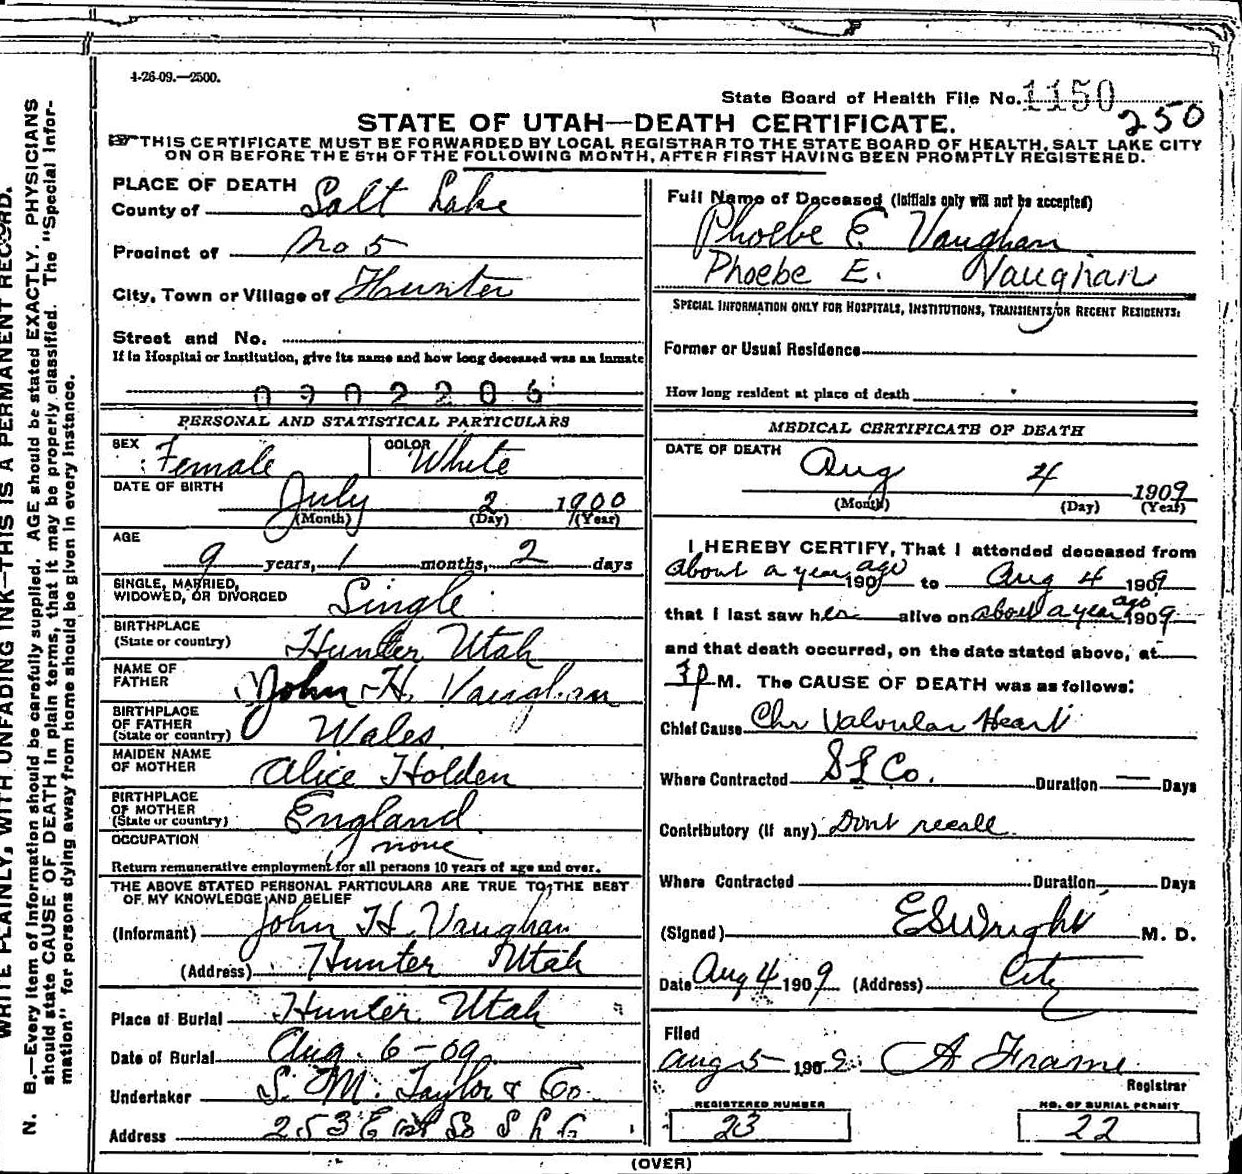 1-26-09.—2500.
State Board of Health File No. 1150
250
STATE OF UTAH—DEATH CERTIFICATE.
THIS CERTIFICATE MUST BE FORWARDED BY LOCAL REGISTRAR TO THE STATE BOARD OF HEALTH, SALT LAKE CITY
ON OR BEFORE THE 5TH OF THE FOLLOWING MONTH, AFTER FIRST HAVING BEEN PROMPTLY REGISTERED.
PLACE OF DEATH
County of Salt Lake
Precinct of No 5
City, Town or Village of Hunter
Street and No.
If in Hospital or Institution, give its name and how long deceased was an inmate
0902206
PERSONAL AND STATISTICAL PARTICULARS
SEX Female COLOR White
DATE OF BIRTH July 2 1900
(Month) (Day) (Year)
AGE 9 years, 1 months, 2 days
SINGLE, MARRIED,
WIDOWED, OR DIVORCED Single
BIRTHPLACE
(State or country) Hunter Utah
NAME OF
FATHER John H. Vaughan
BIRTHPLACE
OF FATHER
(State or country) Wales
MAIDEN NAME
OF MOTHER Alice Holden
BIRTHPLACE
OF MOTHER
(State or country) England
OCCUPATION none
Return remunerative employment for all persons 10 years of age and over.
THE ABOVE STATED PERSONAL PARTICULARS ARE TRUE TO THE BEST
OF MY KNOWLEDGE AND BELIEF
(Informant) John H. Vaughan
(Address) Hunter Utah
Place of Burial Hunter Utah
Date of Burial Aug. 6-09
Undertaker S. M. Taylor & Co.
Address 253 E 1st So S L C
Full Name of Deceased (Initials only will not be accepted)
Phoebe E Vaughan
Phoebe E. Vaughan
SPECIAL INFORMATION ONLY FOR HOSPITALS, INSTITUTIONS, TRANSIENTS OR RECENT RESIDENTS:
Former or Usual Residence
How long resident at place of death
MEDICAL CERTIFICATE OF DEATH
DATE OF DEATH
Aug 4 1909
(Month) (Day) (Year)
I HEREBY CERTIFY, That I attended deceased from
about a year ago 190 to Aug 4 1909
that I last saw her alive on about a year ago 1909
and that death occurred, on the date stated above, at
M. The CAUSE OF DEATH was as follows:
Chief Cause Chr Valvular Heart
Where Contracted S L Co. Duration — Days
Contributory (if any) Dont recall
Where Contracted Duration Days
(Signed) E S Wright M. D.
Date Aug 4 1909 (Address) City
Filed
Aug 5 1909 A Frame
Registrar
REGISTERED NUMBER
23
NO. OF BURIAL PERMIT
22
(OVER)
WRITE PLAINLY, WITH UNFADING INK—THIS IS A PERMANENT RECORD.
N. B.—Every item of information should be carefully supplied. AGE should be stated EXACTLY. PHYSICIANS
should state CAUSE OF DEATH in plain terms, that it may be properly classified. The "Special Infor-
mation" for persons dying away from home should be given in every instance.